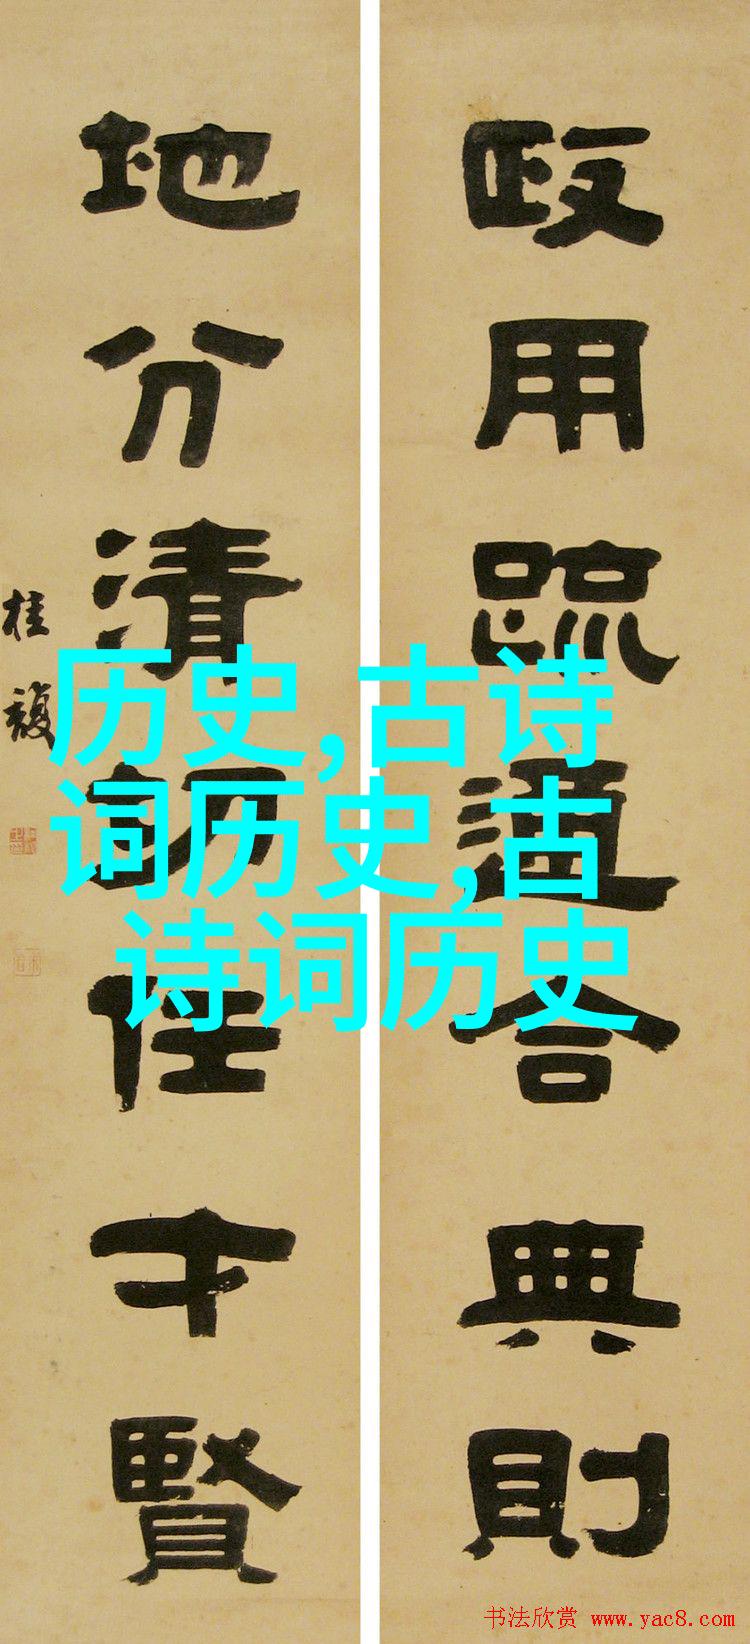 政用疏通合典則
地分清切任才賢
桂馥
历史,古诗
词历史,古
诗词历史
书法欣赏 www.yac8.com